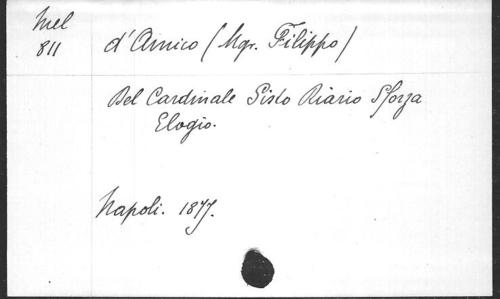 Mel
811
d'Amico (Mgr. Filippo)
Del Cardinale Sisto Riario Sforza
Elogio.
Napoli. 1877.